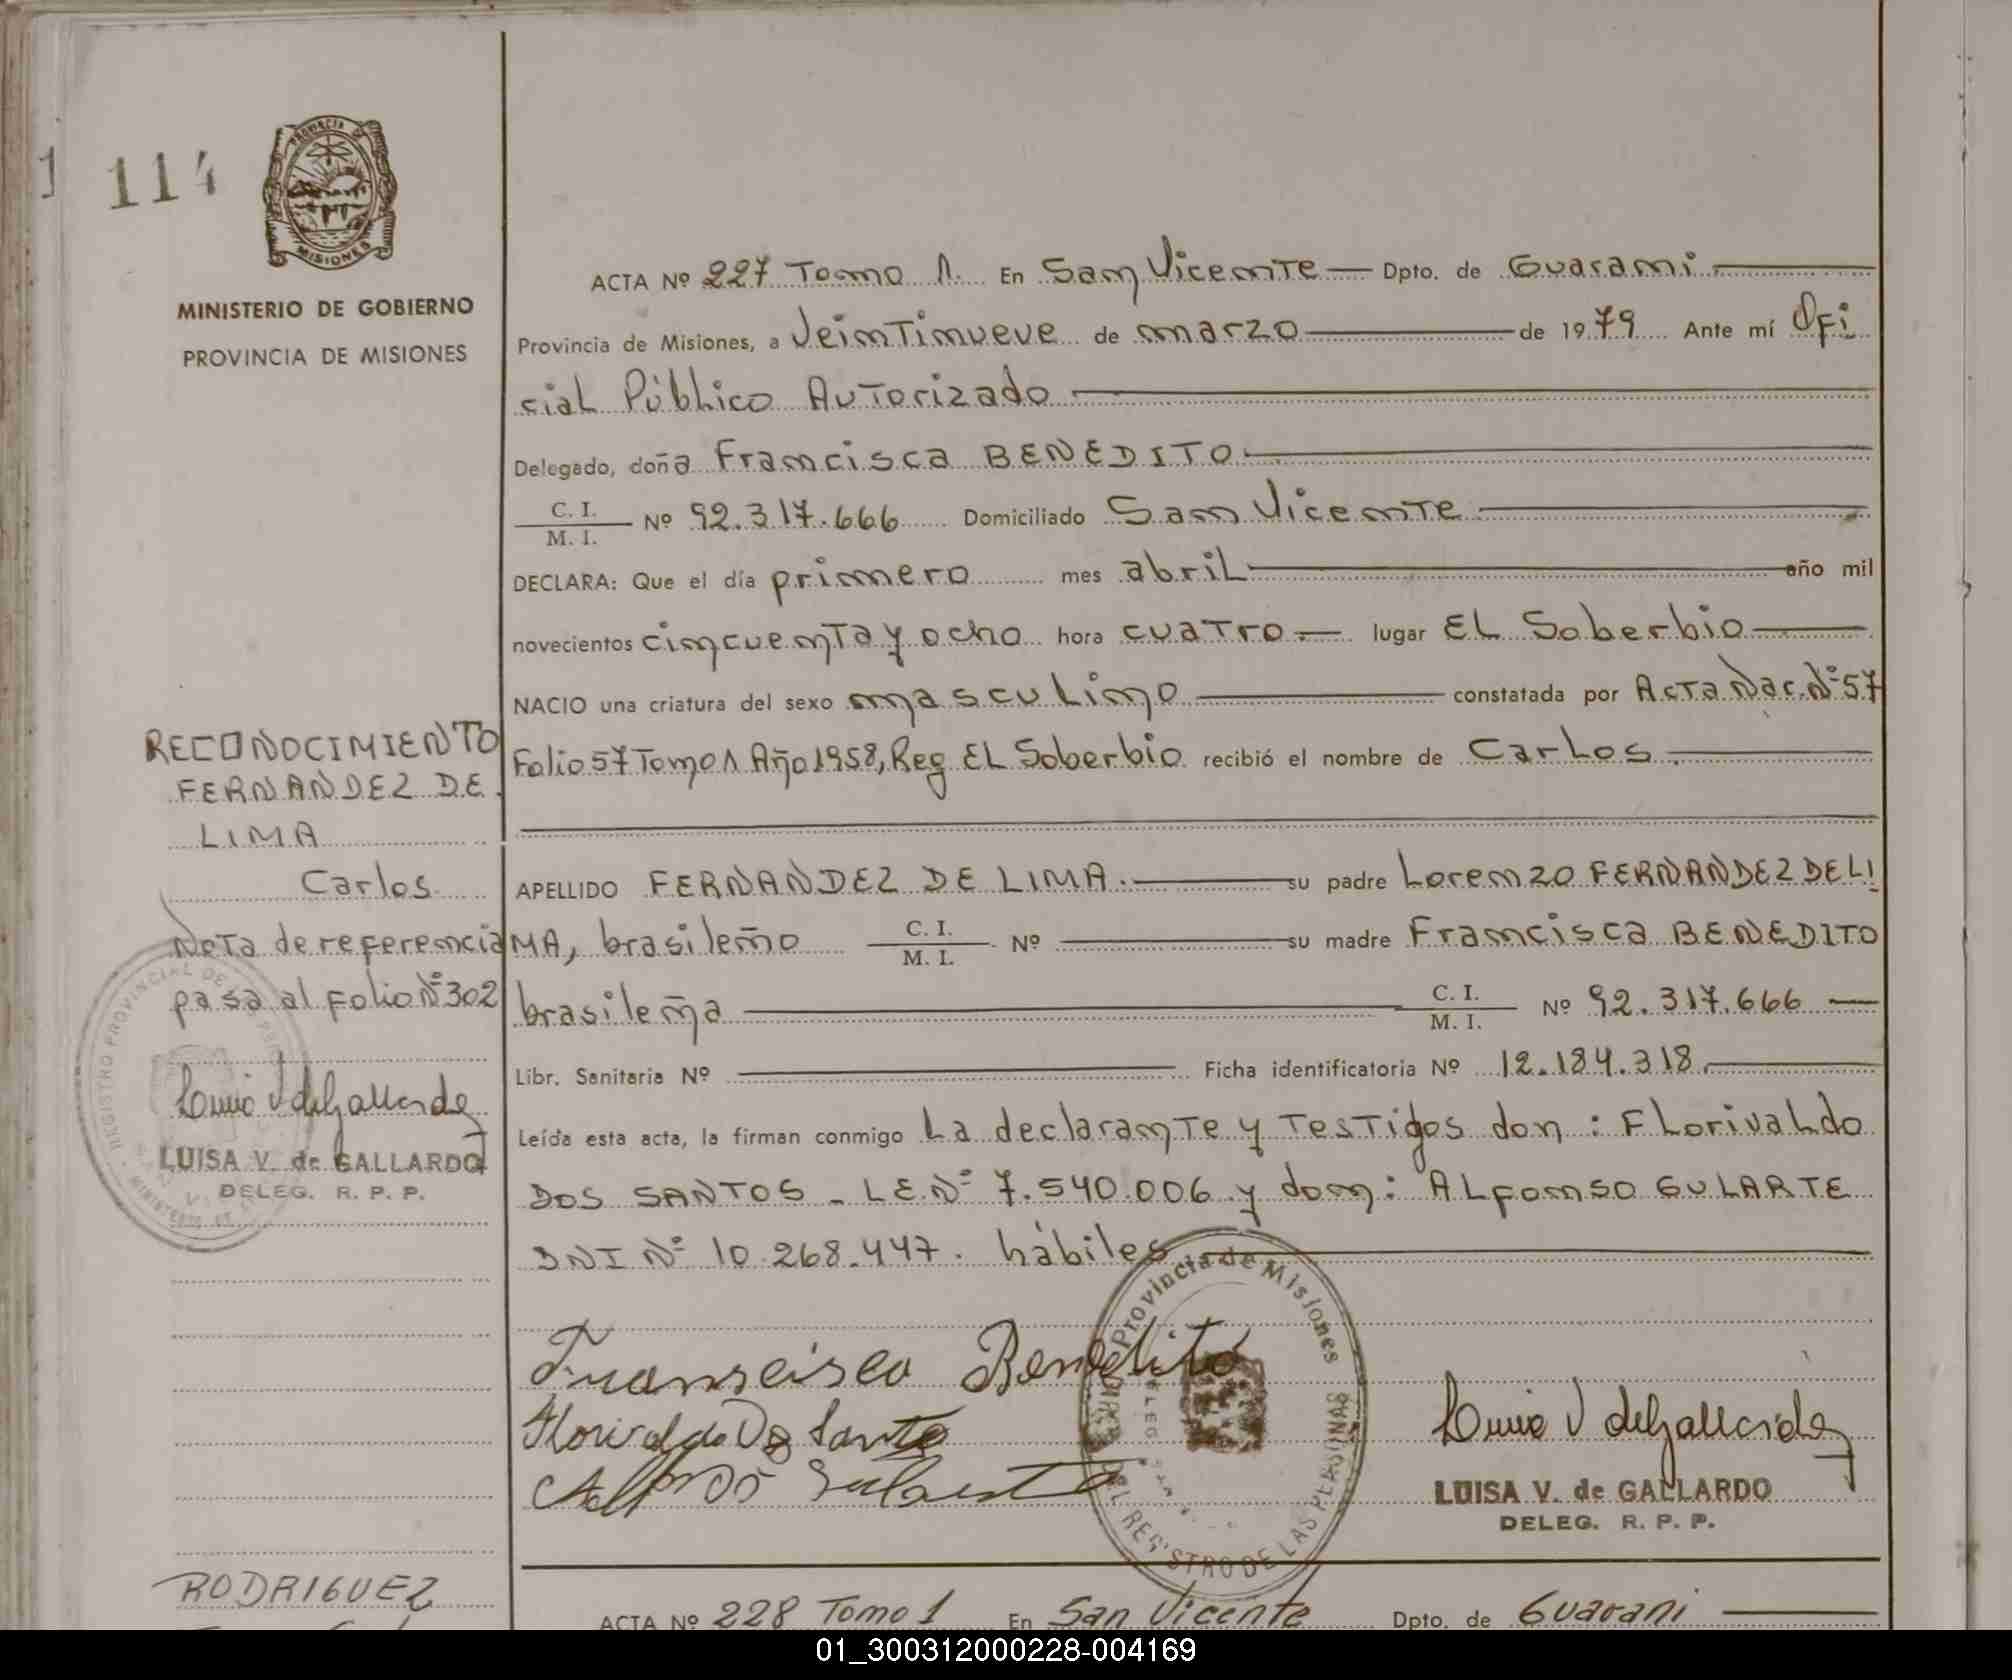 114
PROVINCIA DE
MISIONES
MINISTERIO DE GOBIERNO
PROVINCIA DE MISIONES
ACTA Nº 227 Tomo 1. En San Vicente — Dpto. de Guarani
Provincia de Misiones, a Veintinueve de marzo de 1979 Ante mí Ofi
cial Público Autorizado
Delegado, doña Francisca BENEDITO
C. I.
M. I. Nº 92.317.666 Domiciliado San Vicente
DECLARA: Que el día primero mes abril año mil
novecientos cincuenta y ocho hora cuatro lugar EL Soberbio
NACIO una criatura del sexo masculino constatada por Acta Nac. Nº 57
Folio 57 Tomo 1 Año 1958, Reg EL Soberbio recibió el nombre de Carlos
APELLIDO FERNANDEZ DE LIMA. su padre Lorenzo FERNANDEZ DE LI
MA, brasileño C. I.
M. I. Nº su madre Francisca BENEDITO
brasileña C. I.
M. I. Nº 92.317.666
Libr. Sanitaria Nº Ficha identificatoria Nº 12.184.318
Leída esta acta, la firman conmigo La declarante y Testigos don: Florivaldo
DOS SANTOS - L.E.Nº 7.540.006 y don: Alfonso GULARTE
DNI Nº 10.268.447. hábiles
RECONOCIMIENTO
FERNANDEZ DE
LIMA
Carlos
Nota de referencia
pasa al folio Nº 302
LUISA V. de GALLARDO
DELEG. R. P. P.
REGISTRO PROVINCIAL DE
Fransisca Benedito
Provincia de Misiones
REGISTRO DE LAS PERSONAS
LUISA V. de GALLARDO
DELEG. R. P. P.
RODRIGUEZ
ACTA Nº 228 Tomo 1 En San Vicente Dpto. de Guarani
01_300312000228-004169